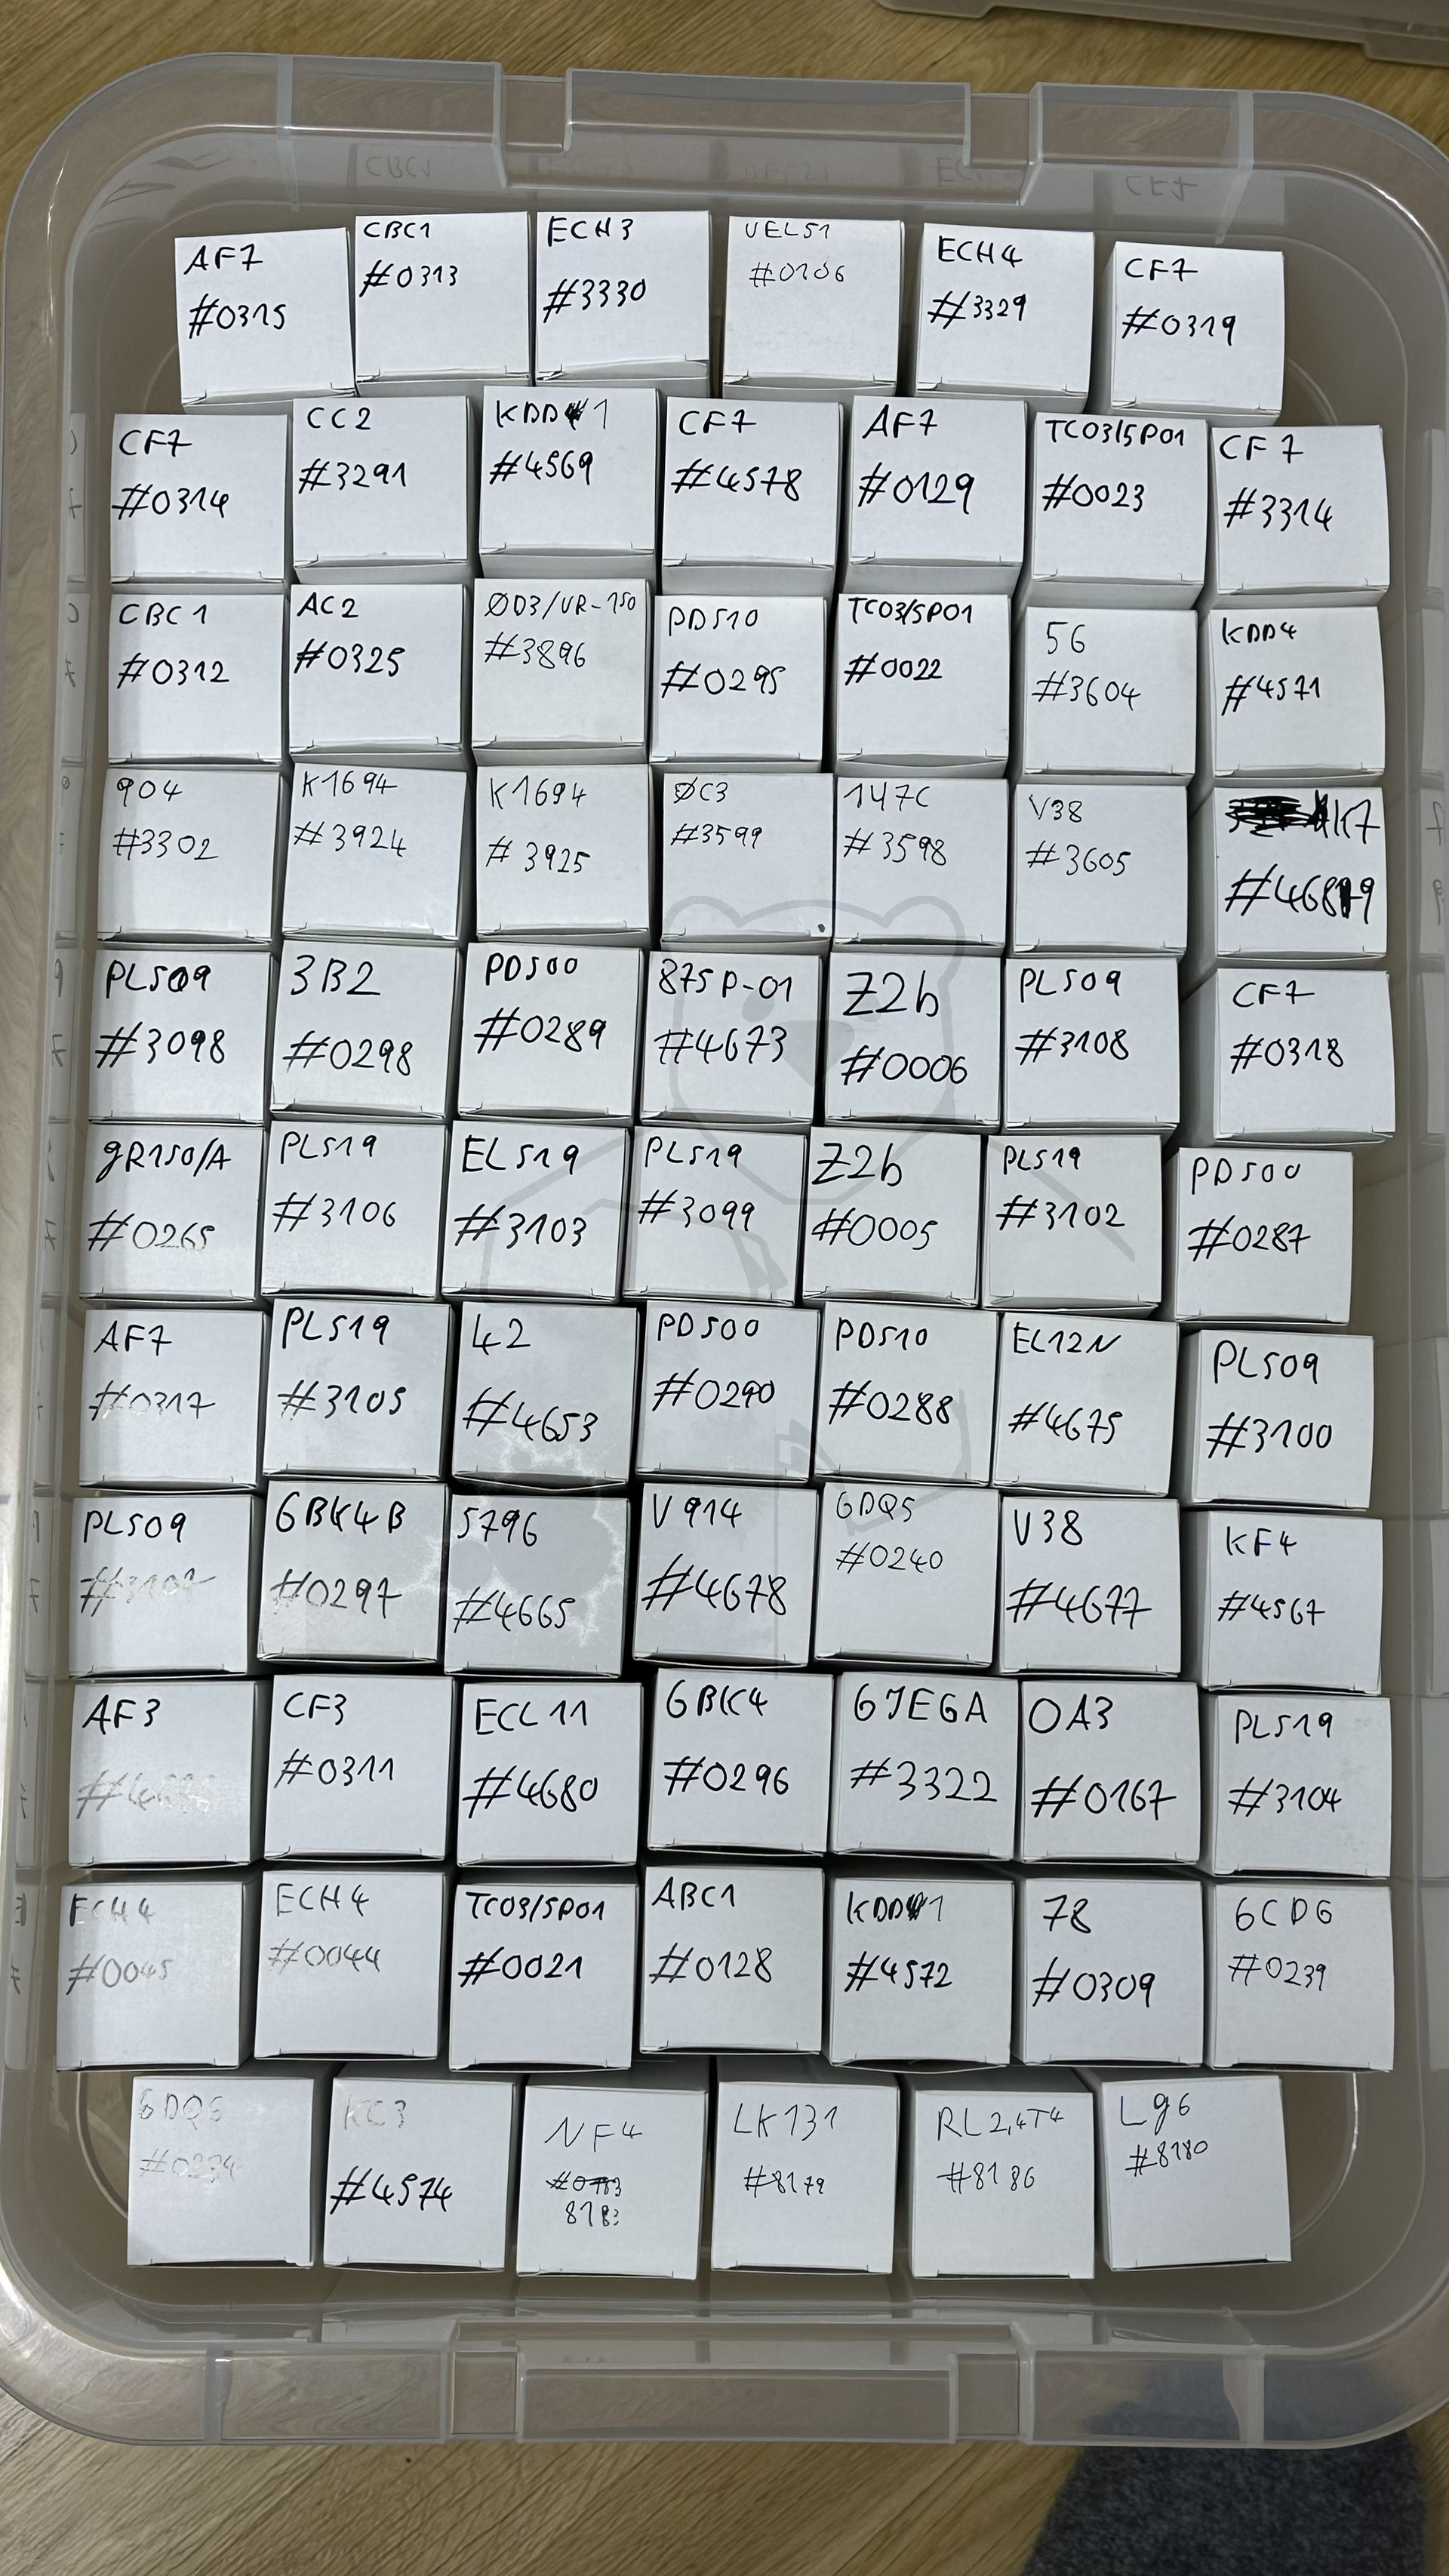 AF7
#0315
CBC1
#0313
ECH3
#3330
UEL51
#0106
ECH4
#3329
CF7
#0319
CF7
#0314
CC2
#3291
KDD1
#4569
CF7
#4578
AF7
#0129
TC03/5P01
#0023
CF7
#3314
CBC1
#0312
AC2
#0325
ØD3/UR-150
#3896
PD510
#0295
TC03/5P01
#0022
56
#3604
KDD4
#4571
904
#3302
K1694
#3924
K1694
#3925
ØC3
#3599
147C
#3598
V38
#3605
K7
PL509
#3098
3B2
#0298
PD500
#0289
875P-01
#4673
Z2b
#0006
PL509
#3108
CF7
#0318
gR150/A
#0265
PL519
#3106
EL519
#3103
PL519
#3099
Z2b
#0005
PL519
#3102
PD500
#0287
AF7
#0317
PL519
#3105
42
#4653
PD500
#0290
PD510
#0288
EL12N
#4675
PL509
#3100
PL509
6BK4B
#0297
5796
#4665
V914
#4678
6DQ5
#0240
V38
#4677
KF4
#4567
AF3
CF3
#0311
ECL11
#4680
6BK4
#0296
6JE6A
#3322
OA3
#0167
PL519
#3104
ECH4
#0045
ECH4
#0044
TC03/5P01
#0021
ABC1
#0128
KDD1
#4572
78
#0309
6CD6
#0239
6DQ6
KC3
#4574
NF4
8183
LK131
#8179
RL2,4T4
#8186
Lg6
#8180